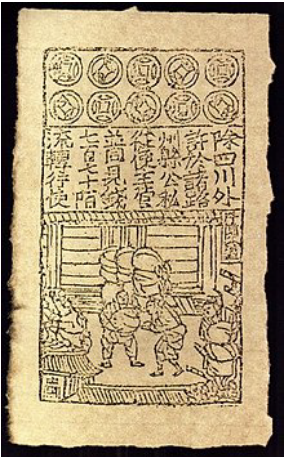 除四川外
許於諸路
州縣公私
從便主管
並同見錢
七百七十陌
流轉行使